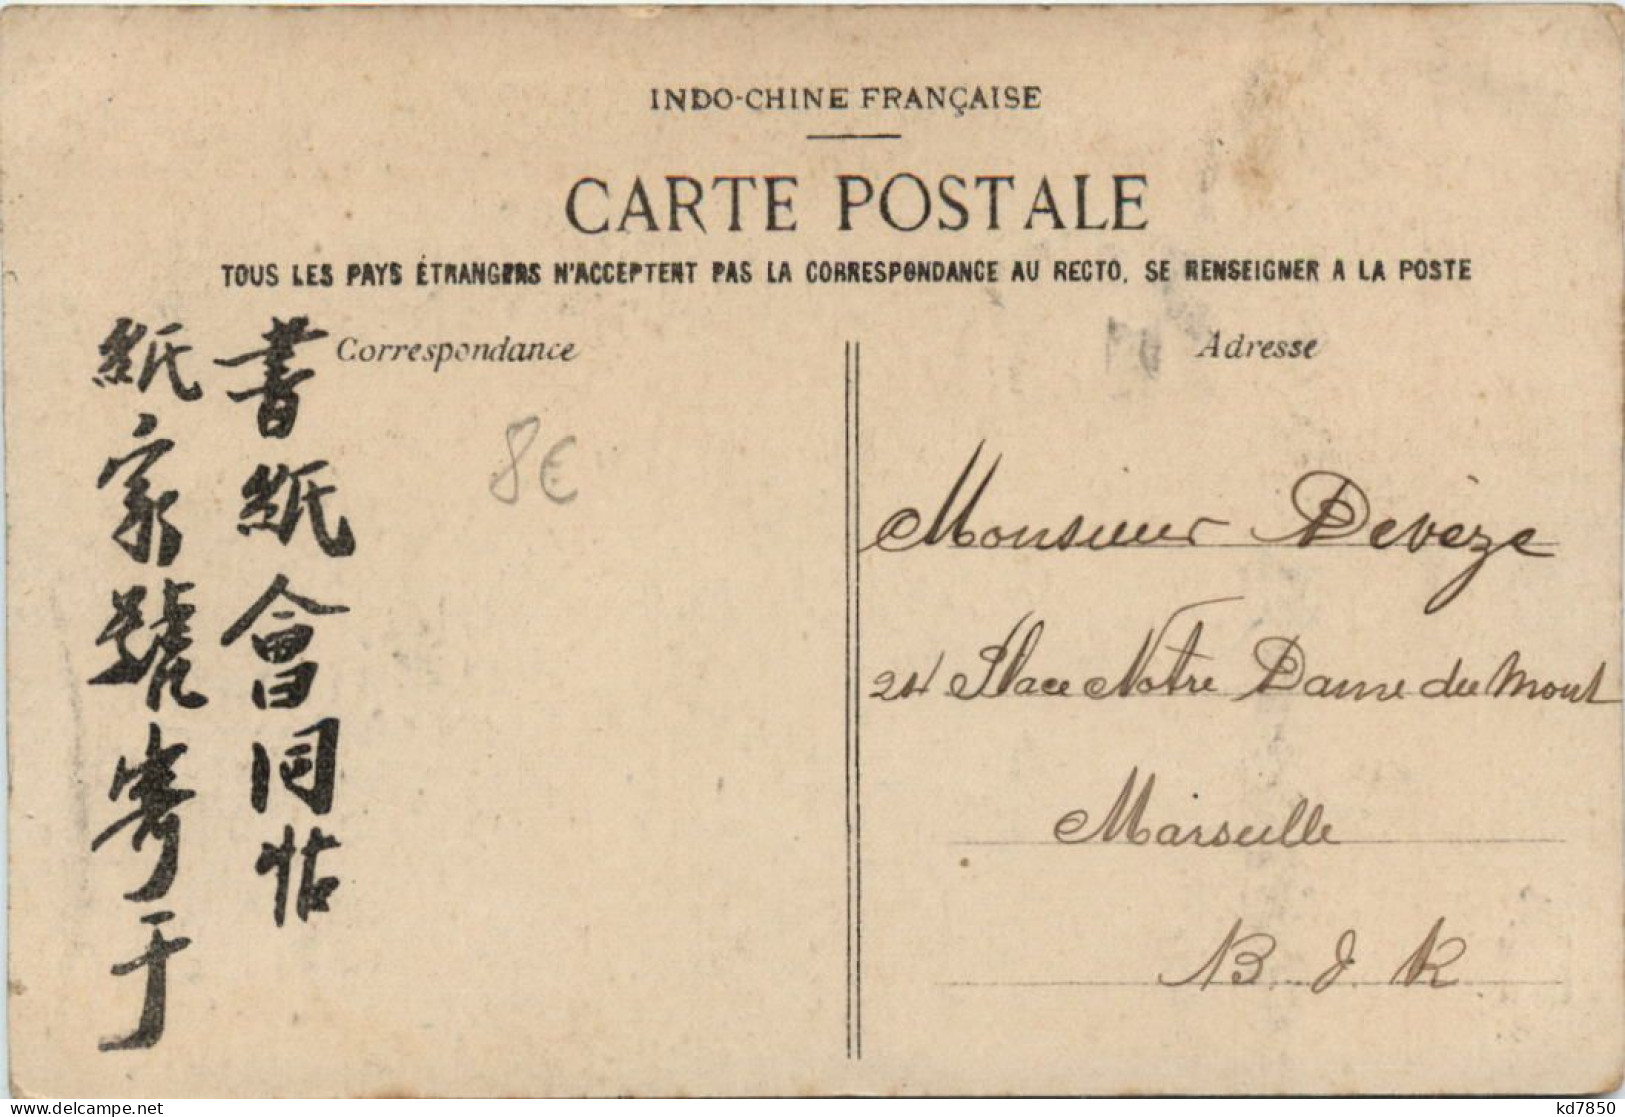 INDO-CHINE FRANÇAISE
CARTE POSTALE
TOUS LES PAYS ÉTRANGERS N'ACCEPTENT PAS LA CORRESPONDANCE AU RECTO, SE RENSEIGNER A LA POSTE
Correspondance
書紙會同帖
紙家號寄于
8€
Adresse
Monsieur Devèze
24 Place Notre Dame du Mont
Marseille
B. d. R
kd7850